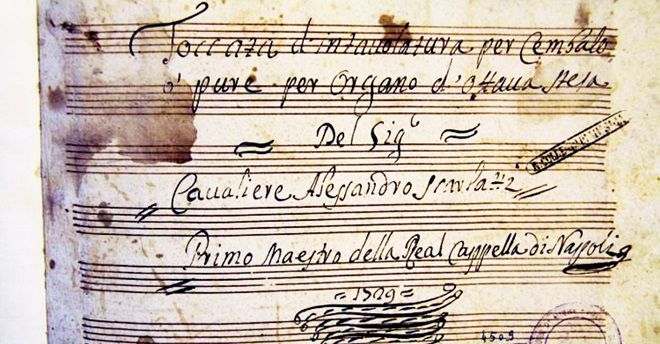 Toccata d'intavolatura per Cembalo
ò pure per Organo d'ottava stesa
Del Sig.r
Cavaliere Alessandro Scarlatti
Primo Maestro della Real Cappella di Napoli
= 1729 =
4509